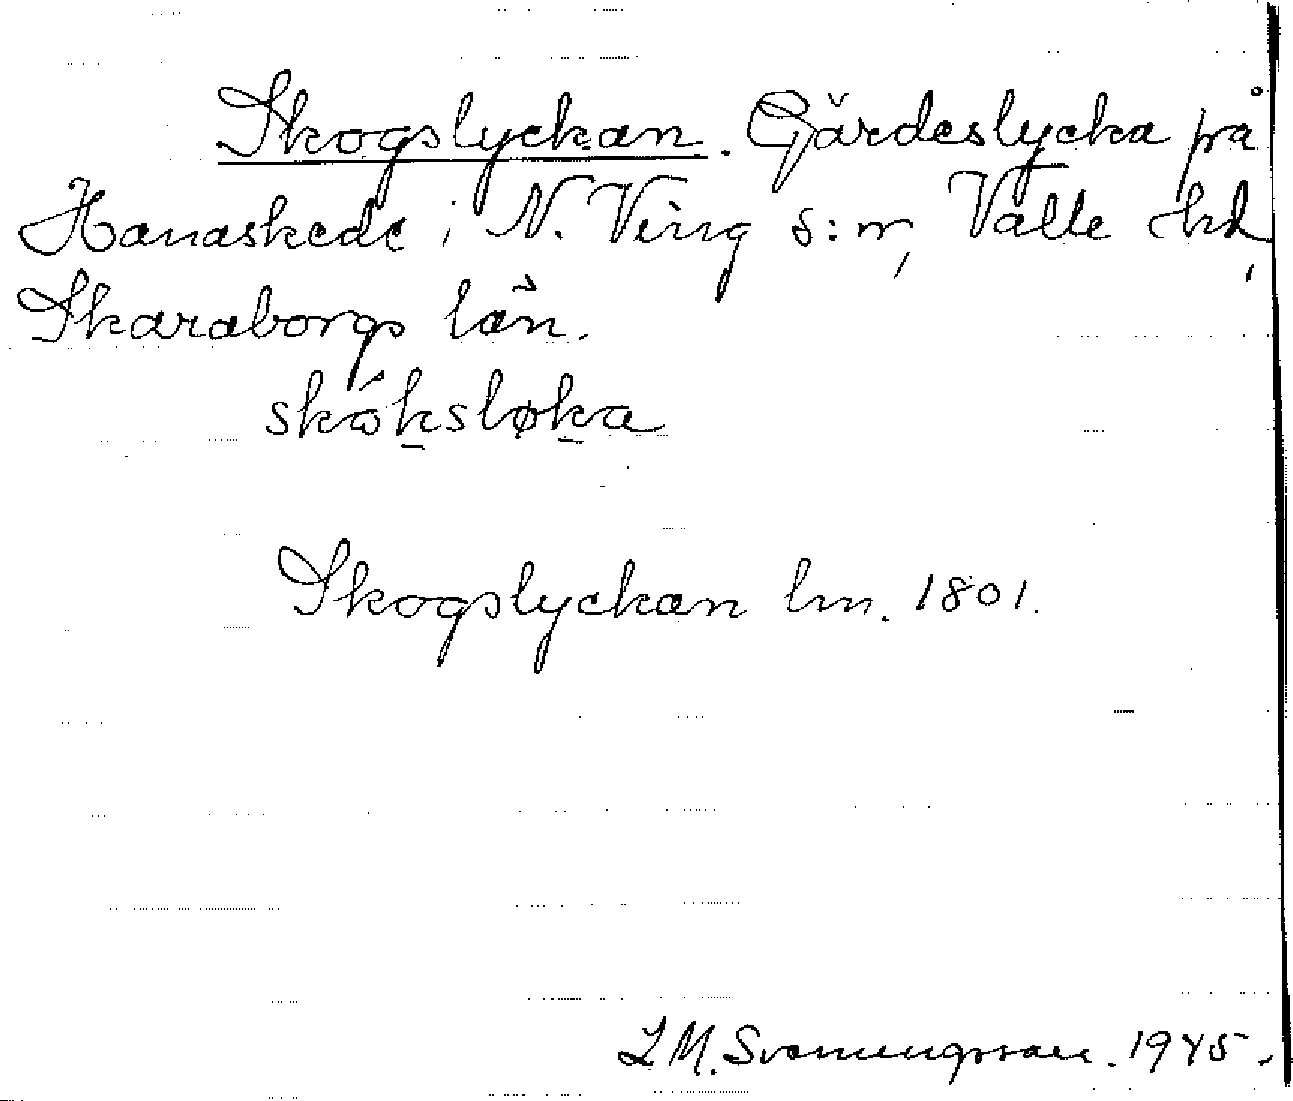 Skogslyckan. Gärdeslycka på
Hanaskede i N. Ving s:n, Valle hd,
Skaraborgs län.
skó̱ksløḵa
Skogslyckan lm. 1801.
L M. Svenungsson. 1945.